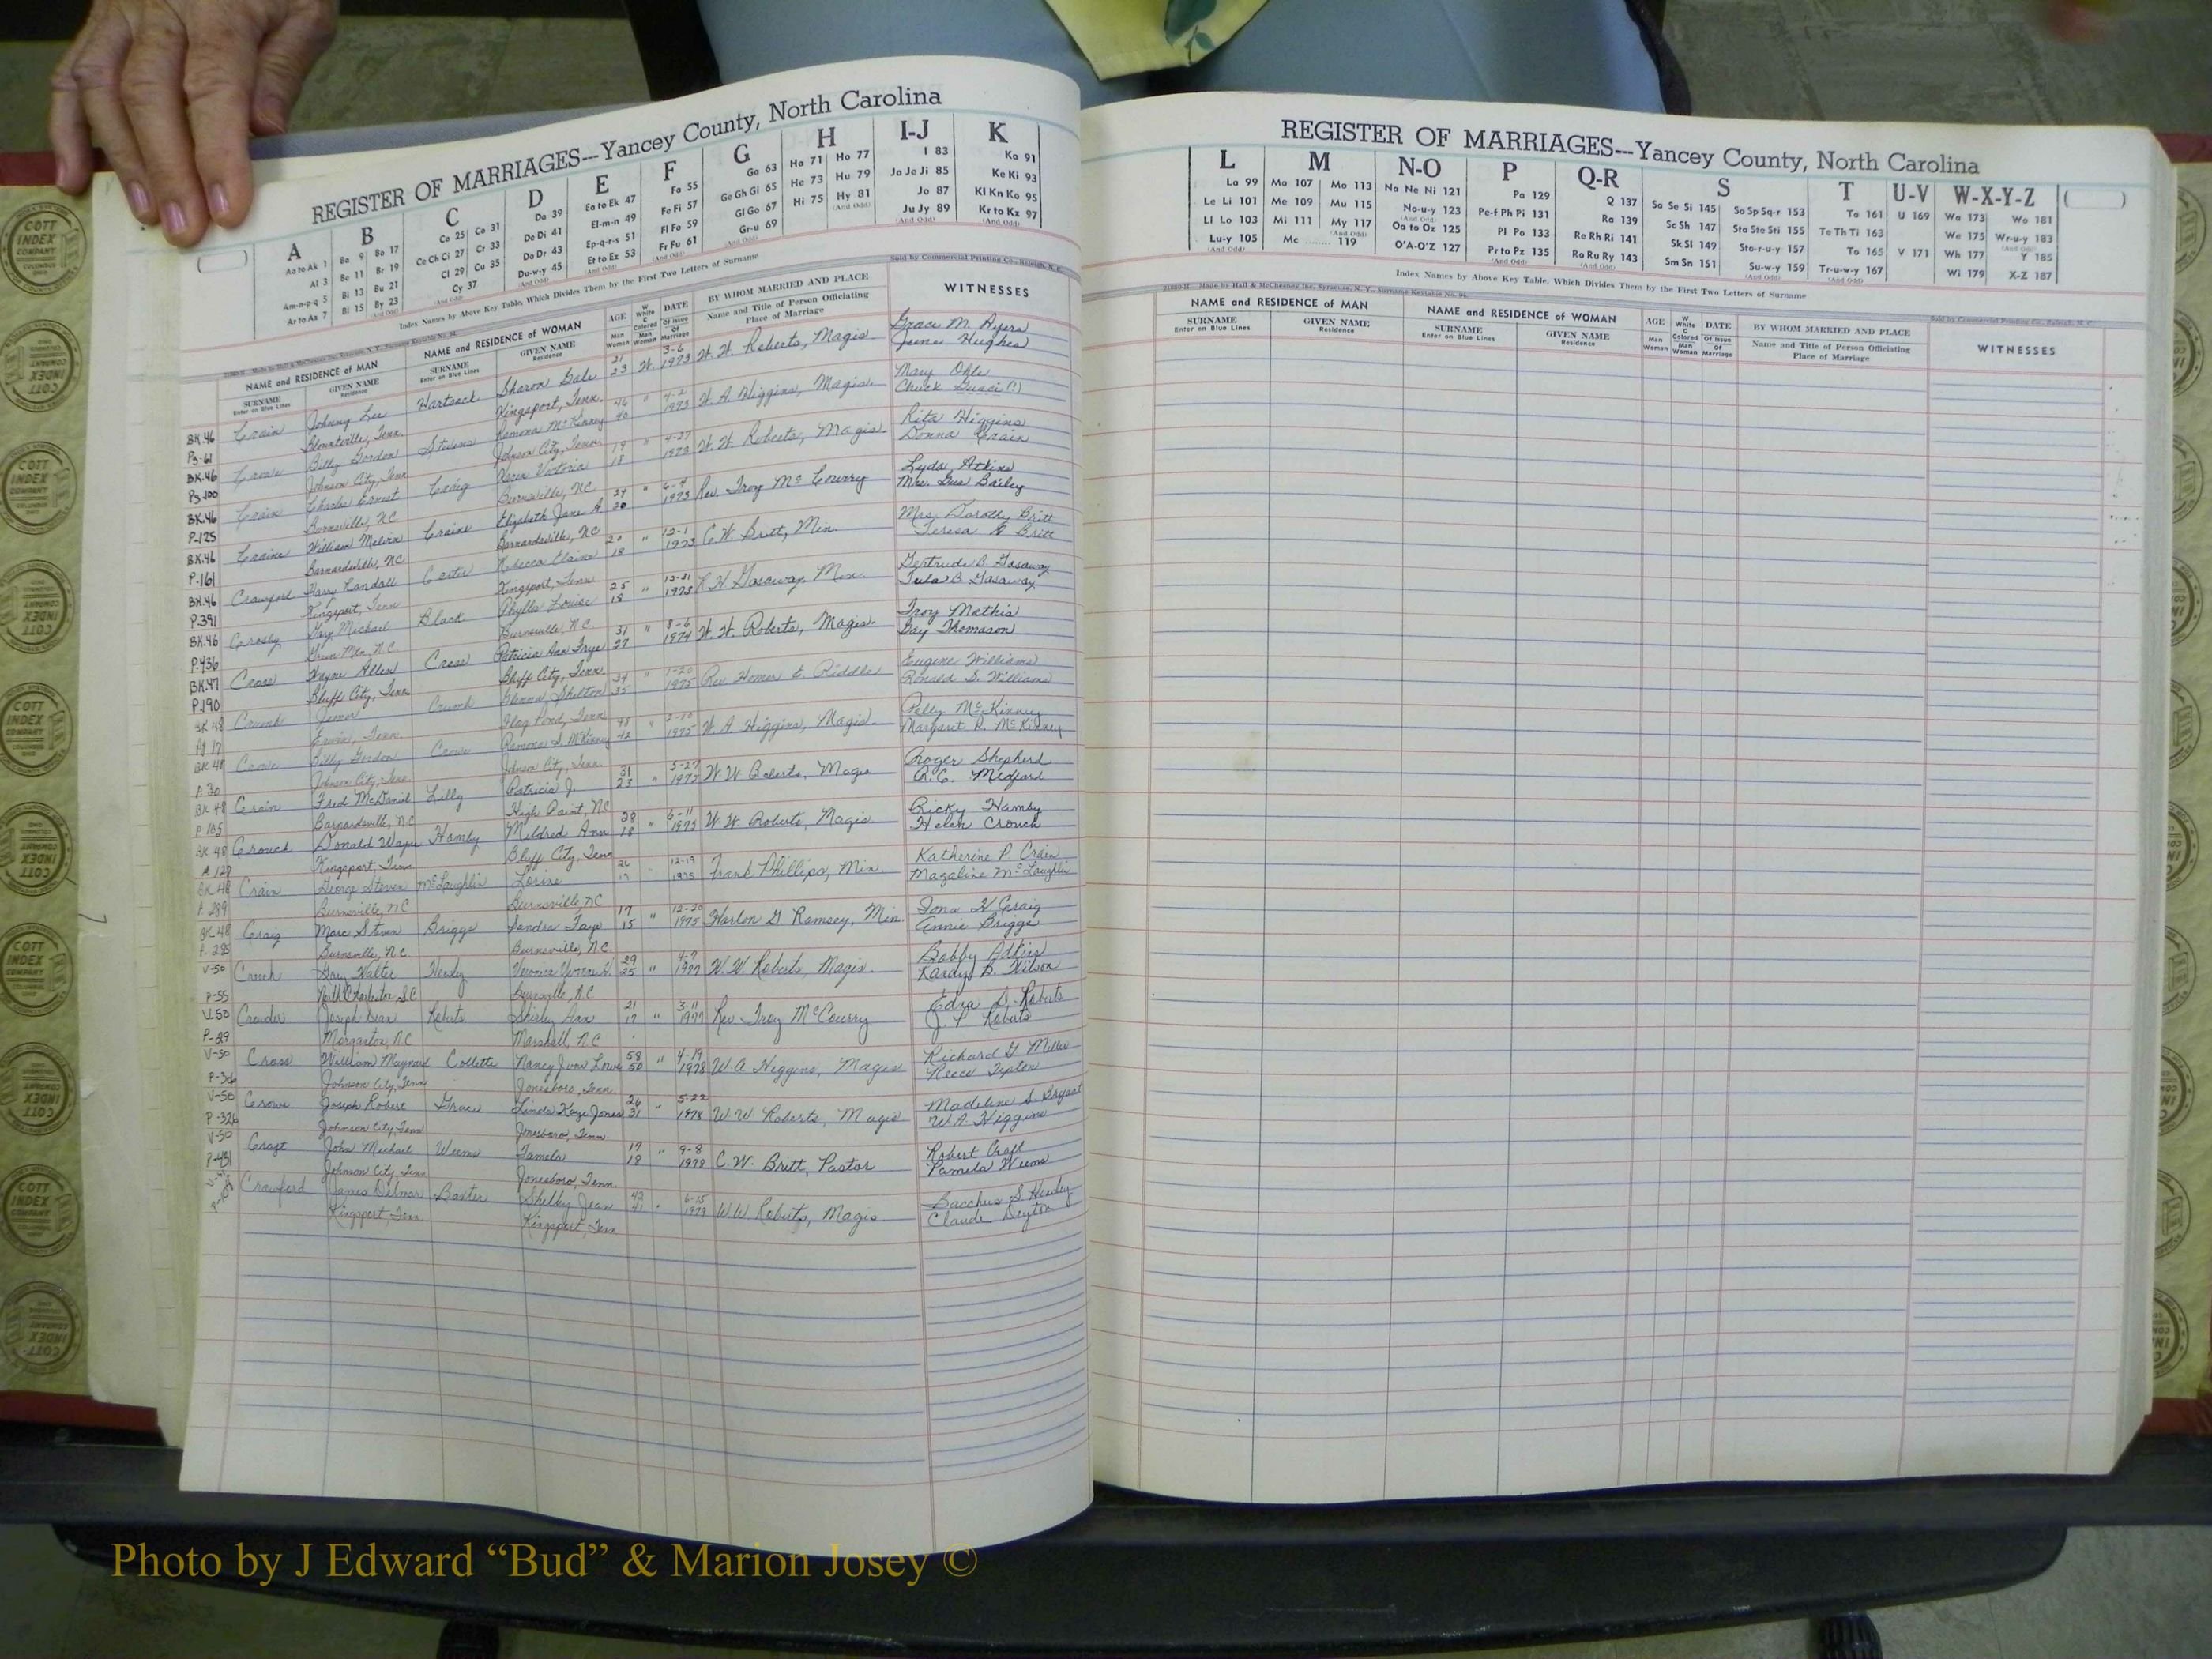 REGISTER OF MARRIAGES---Yancey County, North Carolina
A B C D E F G H I-J K
Aa to Ak 1 Ba 9 Bo 17 Ca 25 Co 31 Da 39 Ea to Ek 47 Fa 55 Ga 63 Ha 71 Ho 77 I 83 Ka 91
Al 3 Be 11 Br 19 Ce Ch Ci 27 Cr 33 De Di 41 El-m-n 49 Fe Fi 57 Ge Gh Gi 65 He 73 Hu 79 Ja Je Ji 85 Ke Ki 93
Am-n-p-q 5 Bi 13 Bu 21 Cl 29 Cu 35 Do Dr 43 Ep-q-r-s 51 Fl Fo 59 Gl Go 67 Hi 75 Hy 81 Jo 87 Kl Kn Ko 95
Ar to Az 7 Bl 15 By 23 Cy 37 Du-w-y 45 Et to Ez 53 Fr Fu 61 Gr-u 69 Ju Jy 89 Kr to Kz 97
Index Names by Above Key Table, Which Divides Them by the First Two Letters of Surname
Sold by Commercial Printing Co., Raleigh, N. C.
NAME and RESIDENCE OF MAN NAME and RESIDENCE OF WOMAN AGE W White C Colored DATE BY WHOM MARRIED AND PLACE WITNESSES
SURNAME GIVEN NAME SURNAME GIVEN NAME Man Woman Man Woman Of Issue Of Marriage Name and Title of Person Officiating
Enter on Blue Lines Residence Enter on Blue Lines Residence Place of Marriage
BK.46 Crain Johnny Lee Hartsock Sharon Gale 21 W. 3-6 W. W. Roberts, Magis Grace M. Ayers
Pg-61 Blountville, Tenn. Kingsport, Tenn. 23 1973 Hughes
BK.46 Crowe Billy Gordon Stevens Ramona McKinney 46 " 4-2 W. A. Higgins, Magis. Mary Ohle
Pg.100 Johnson City, Tenn Johnson City, Tenn. 40 1973 Chuck
BK.46 Crain Charles Ernest Craig Karen Victoria 19 " 4-27 W. W. Roberts, Magis. Rita Higgins
P-125 Burnsville, NC Burnsville, NC 18 1973 Donna Crain
BK.46 Craine William Melvin Craine Elizabeth Jane A 24 " 6-4 Rev. Troy McCourry Lyda Atkins
P-161 Barnardsville, NC Barnardsville, NC 20 1973 Mrs. Gus Bailey
BK.46 Crawford Harry Randall Carter Rebecca Elaine 20 " 12-1 C. W. Britt, Min. Mrs. Dorothy Britt
P.391 Kingsport, Tenn Kingsport, Tenn 18 1973 Teresa A Britt
BK.46 Crosby Gary Michael Black Phyllis Louise 25 " 12-31 R. W. Gasaway, Min. Gertrude B Gasaway
P.436 Green Mtn, N.C Burnsville, N.C. 18 1973 Tula B Gasaway
BK.47 Cross Wayne Allen Cross Patricia Ann Frye 31 " 8-6 W. W. Roberts, Magis. Troy Mathis
P.190 Bluff City, Tenn Bluff City, Tenn. 27 1974 Gay Thomason
BK 48 Crumb James Crumb Glenna Shelton 34 " 1-20 Rev Homer E. Riddle Eugene Williams
Pg 17 Erwin, Tenn. Flag Pond, Tenn. 35 1975 Ronald S. Williams
BK 48 Crowe Billy Gordon Crowe Ramona S. McKinney 48 " 2-10 W. A Higgins, Magis. Polly McKinney
P. 30 Johnson City, Tenn Johnson City, Tenn. 42 1975 Margaret R. McKinney
BK 48 Crain Fred McDaniel Lilly Patricia J. 31 " 5-27 W W Roberts, Magis Roger Shepherd
P 105 Barnardsville, N.C High Point, NC 23 1975 A.C. Medford
BK 48 Crouch Donald Wayne Hamby Mildred Ann 28 " 6-11 W. W. Roberts, Magis. Ricky Hamby
P. 127 Kingsport, Tenn Bluff City, Tenn 18 1975 Helen Crouch
BK 48 Crain George Steven McLaughlin Lorine 26 12-19 Frank Phillips, Min Katherine P. Crain
P. 289 Burnsville, NC Burnsville, NC 17 1975 Magaline McLaughlin
BK 48 Craig Marc Steven Briggs Sandra Faye 17 " 12-20 Harlon G Ramsey, Min. Iona H Craig
P. 285 Burnsville, N.C. Burnsville, N.C. 15 1975 Annie Briggs
V-50 Creech Walter Hensley 29 " 4-7 W. W. Roberts, Magis. Bobby Adkins
P-55 North Charleston S.C Burnsville, N.C 25 1977 Randy B. Wilson
V-50 Crowder Joseph Dean Roberts Shirley Ann 21 " 3-11 Rev Troy McCourry Edra L. Roberts
P-29 Morganton, NC Marshall, NC 17 1977 J. Y. Roberts
V-50 Cross William Maynard Collette Nancy Jvon Lowe 58 " 4-19 W A Higgins, Magis Richard G Miller
Johnson City, Tenn Jonesboro, Tenn. 50 1978 Reece Tipton
V-50 Crowe Joseph Robert Grace Linda Kaye Jones 26 " 5-22 W W Roberts, Magis Madeline S Bryant
P-326 Johnson City, Tenn Jonesboro, Tenn. 31 1978 W. A. Higgins
V-50 Craft John Michael Weems Pamela 17 " 9-8 C. W. Britt, Pastor Robert Craft
P-431 Johnson City, Tenn Jonesboro, Tenn. 18 1978 Pamela Weems
Crawford James Delmar Baxter Shelby Jean 42 " 6-15 W W Roberts, Magis. Bacchus S. Hensley
Kingsport, Tenn. Kingsport, Tenn. 41 1979 Claude Deyton
REGISTER OF MARRIAGES---Yancey County, North Carolina
L M N-O P Q-R S T U-V W-X-Y-Z
La 99 Ma 107 Mo 113 Na Ne Ni 121 Pa 129 Q 137 Sa Se Si 145 So Sp Sq-r 153 Ta 161 U 169 Wa 173 Wo 181
Le Li 101 Me 109 Mu 115 No-u-y 123 Pe-f Ph Pi 131 Ra 139 Sc Sh 147 Sta Ste Sti 155 Te Th Ti 163 We 175 Wr-u-y 183
Ll Lo 103 Mi 111 My 117 Oa to Oz 125 Pl Po 133 Re Rh Ri 141 Sk Sl 149 Sto-r-u-y 157 To 165 V 171 Wh 177 Y 185
Lu-y 105 Mc 119 O'A-O'Z 127 Pr to Pz 135 Ro Ru Ry 143 Sm Sn 151 Su-w-y 159 Tr-u-w-y 167 Wi 179 X-Z 187
Index Names by Above Key Table, Which Divides Them by the First Two Letters of Surname
NAME and RESIDENCE OF MAN NAME and RESIDENCE OF WOMAN AGE W White C Colored DATE BY WHOM MARRIED AND PLACE WITNESSES
SURNAME GIVEN NAME SURNAME GIVEN NAME Man Woman Man Woman Of Issue Of Marriage Name and Title of Person Officiating
Enter on Blue Lines Residence Enter on Blue Lines Residence Place of Marriage
COTT INDEX COMPANY
Photo by J Edward “Bud” & Marion Josey ©